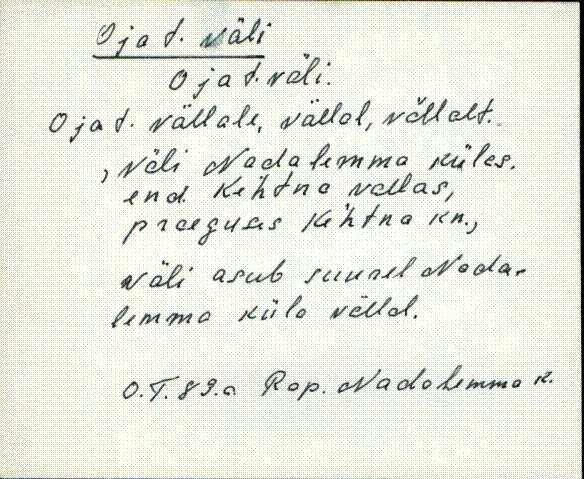 Ojat. väli
Ojat. väli.
Ojat. vällale, vällal, vällalt.
, väli Nadalemma küles.
end. Kehtna vallas,
praeguses Kehtna kn.,
väli asub suurel Nada-
lemma küla vällal.
O.T. 89.a Rap. Nadalemma k.